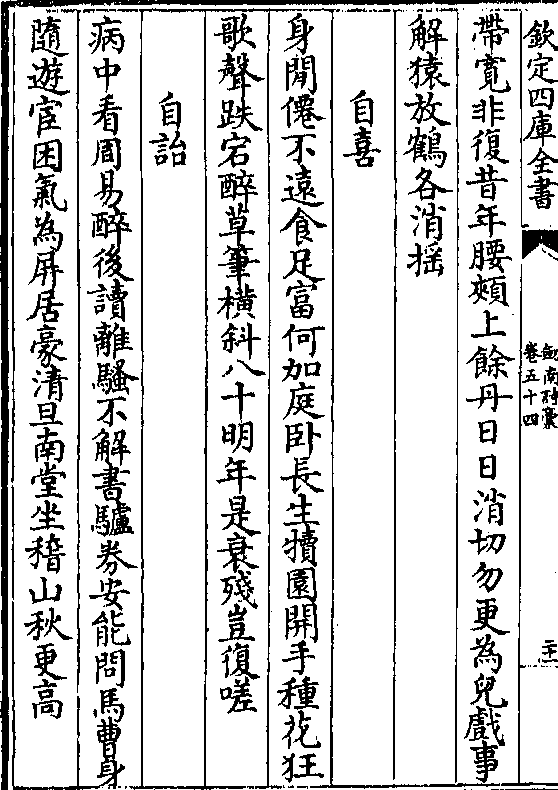 欽定四庫全書
劍南詩稾
卷五十四
二十一
帶寛非復昔年腰頰上餘丹日日消切勿更為兒戲事
解猿放鶴各消揺
自喜
身閒僊不遠食足富何加庭卧長生犢園開手種花狂
歌聲跌宕醉草筆橫斜八十明年是衰殘豈復嗟
自詒
病中看周易醉後讀離騷不解書驢券安能問馬曹身
隨遊宦困氣為屏居豪清旦南堂坐稽山秋更高